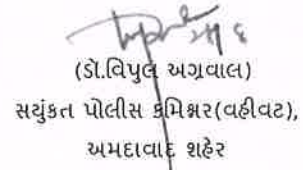 (ડો.વિપુલ અગ્રવાલ)
સયુંકત પોલીસ કમિશ્નર(વહીવટ),
અમદાવાદ શહેર